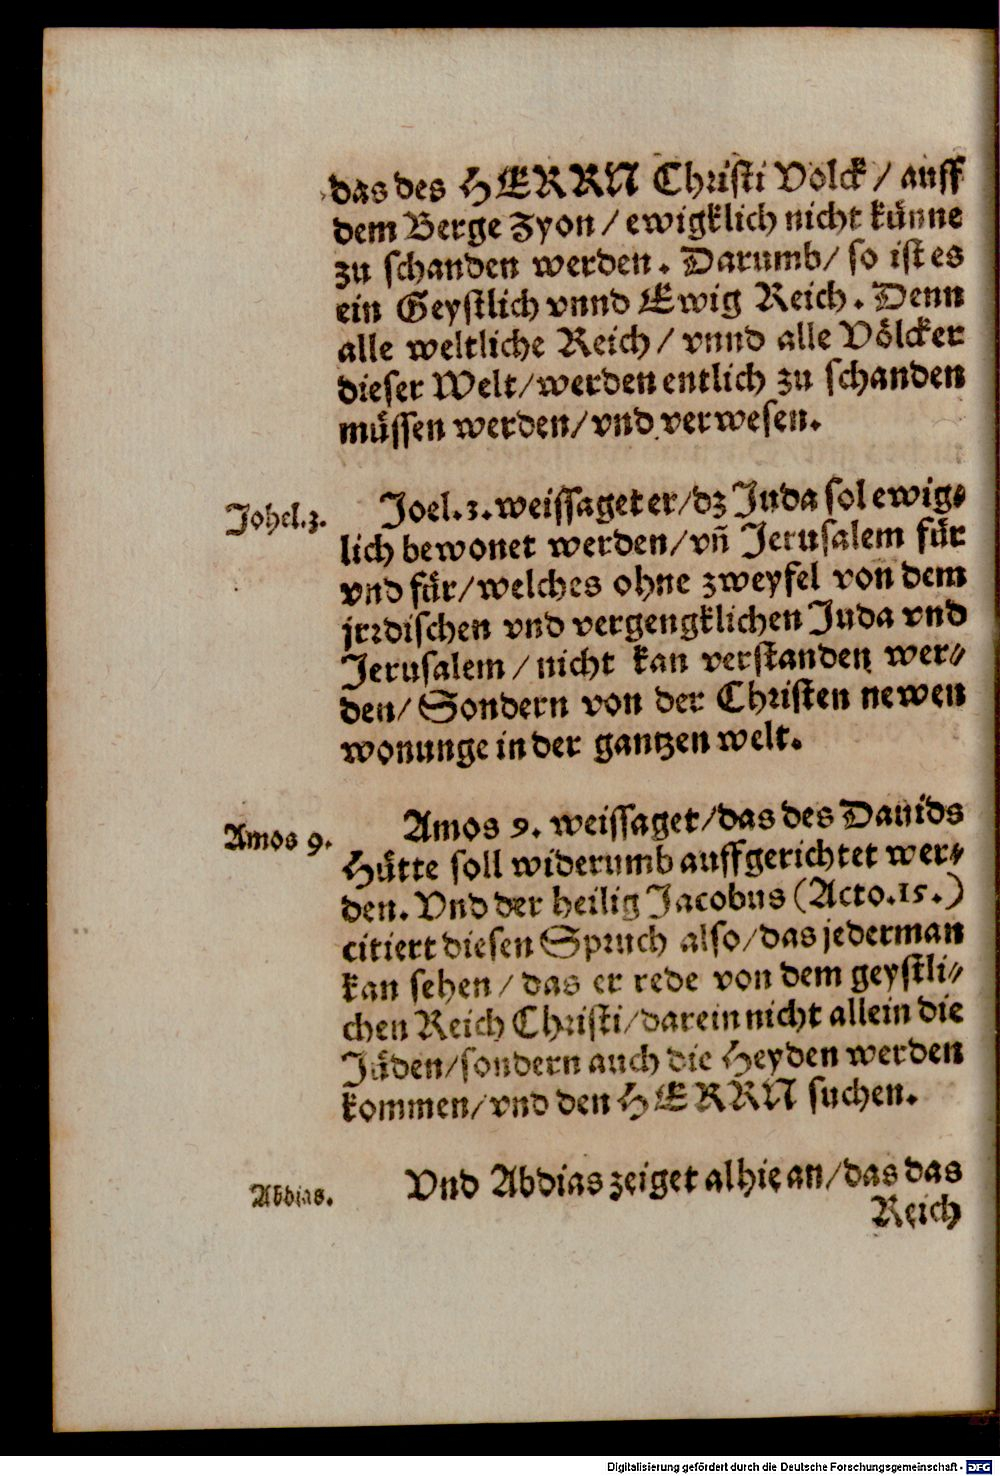 das des HERRN Christi Volck / auff
dem Berge Zyon / ewigklich nicht künne
zu schanden werden. Darumb / so ist es
ein Geystlich vnnd Ewig Reich. Denn
alle weltliche Reich / vnnd alle Völcker
dieser Welt / werden entlich zu schanden
müssen werden / vnd verwesen.
Johel. 3.
Joel. 3. weissaget er / dz Juda sol ewig⸗
lich bewonet werden / vñ Jerusalem für
vnd für / welches ohne zweyfel von dem
jrrdischen vnd vergengklichen Juda vnd
Jerusalem / nicht kan verstanden wer⸗
den / Sondern von der Christen newen
wonunge in der gantzen welt.
Amos 9.
Amos 9. weissaget / das des Dauids
Hütte soll widerumb auffgerichtet wer⸗
den. Vnd der heilig Jacobus (Acto. 15.)
citiert diesen Spruch also / das jederman
kan sehen / das er rede von dem geystli⸗
chen Reich Christi / darein nicht allein die
Jüden / sondern auch die Heyden werden
kommen / vnd den HERRN suchen.
Abdias.
Vnd Abdias zeiget alhie an / das das
Reich
Digitalisierung gefördert durch die Deutsche Forschungsgemeinschaft - DFG